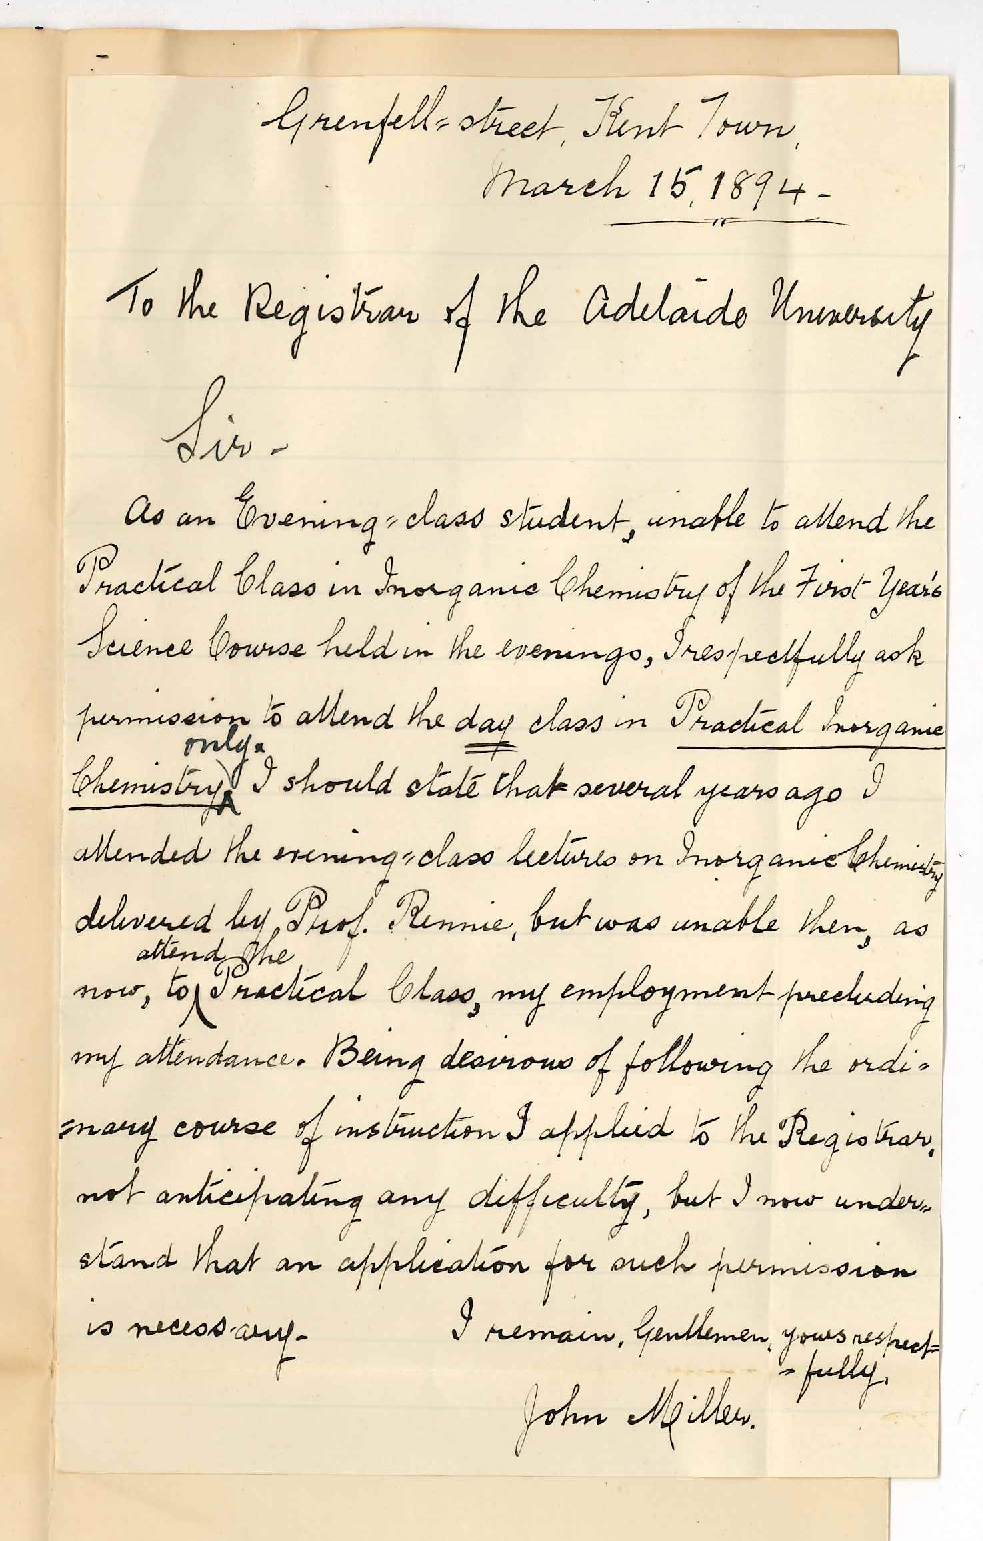 Grenfell=street, Kent Town,
March 15, 1894-
To the Registrar of the Adelaide University
Sir-
As an Evening=class student, unable to attend the
Practical Class in Inorganic Chemistry of the First Year's
Science Course held in the evenings, I respectfully ask
permission to attend the day class in Practical Inorganic
only.
Chemistry. I should state that several years ago I
attended the evening=class lectures on Inorganic Chemistry
delivered by Prof. Rennie, but was unable then, as
attend the
now, to Practical Class, my employment precluding
my attendance. Being desirous of following the ordi=
=nary course of instruction I applied to the Registrar,
not anticipating any difficulty, but I now under=
stand that an application for such permission
is necessary- I remain, Gentlemen, yours respect=
=fully,
John Miller.